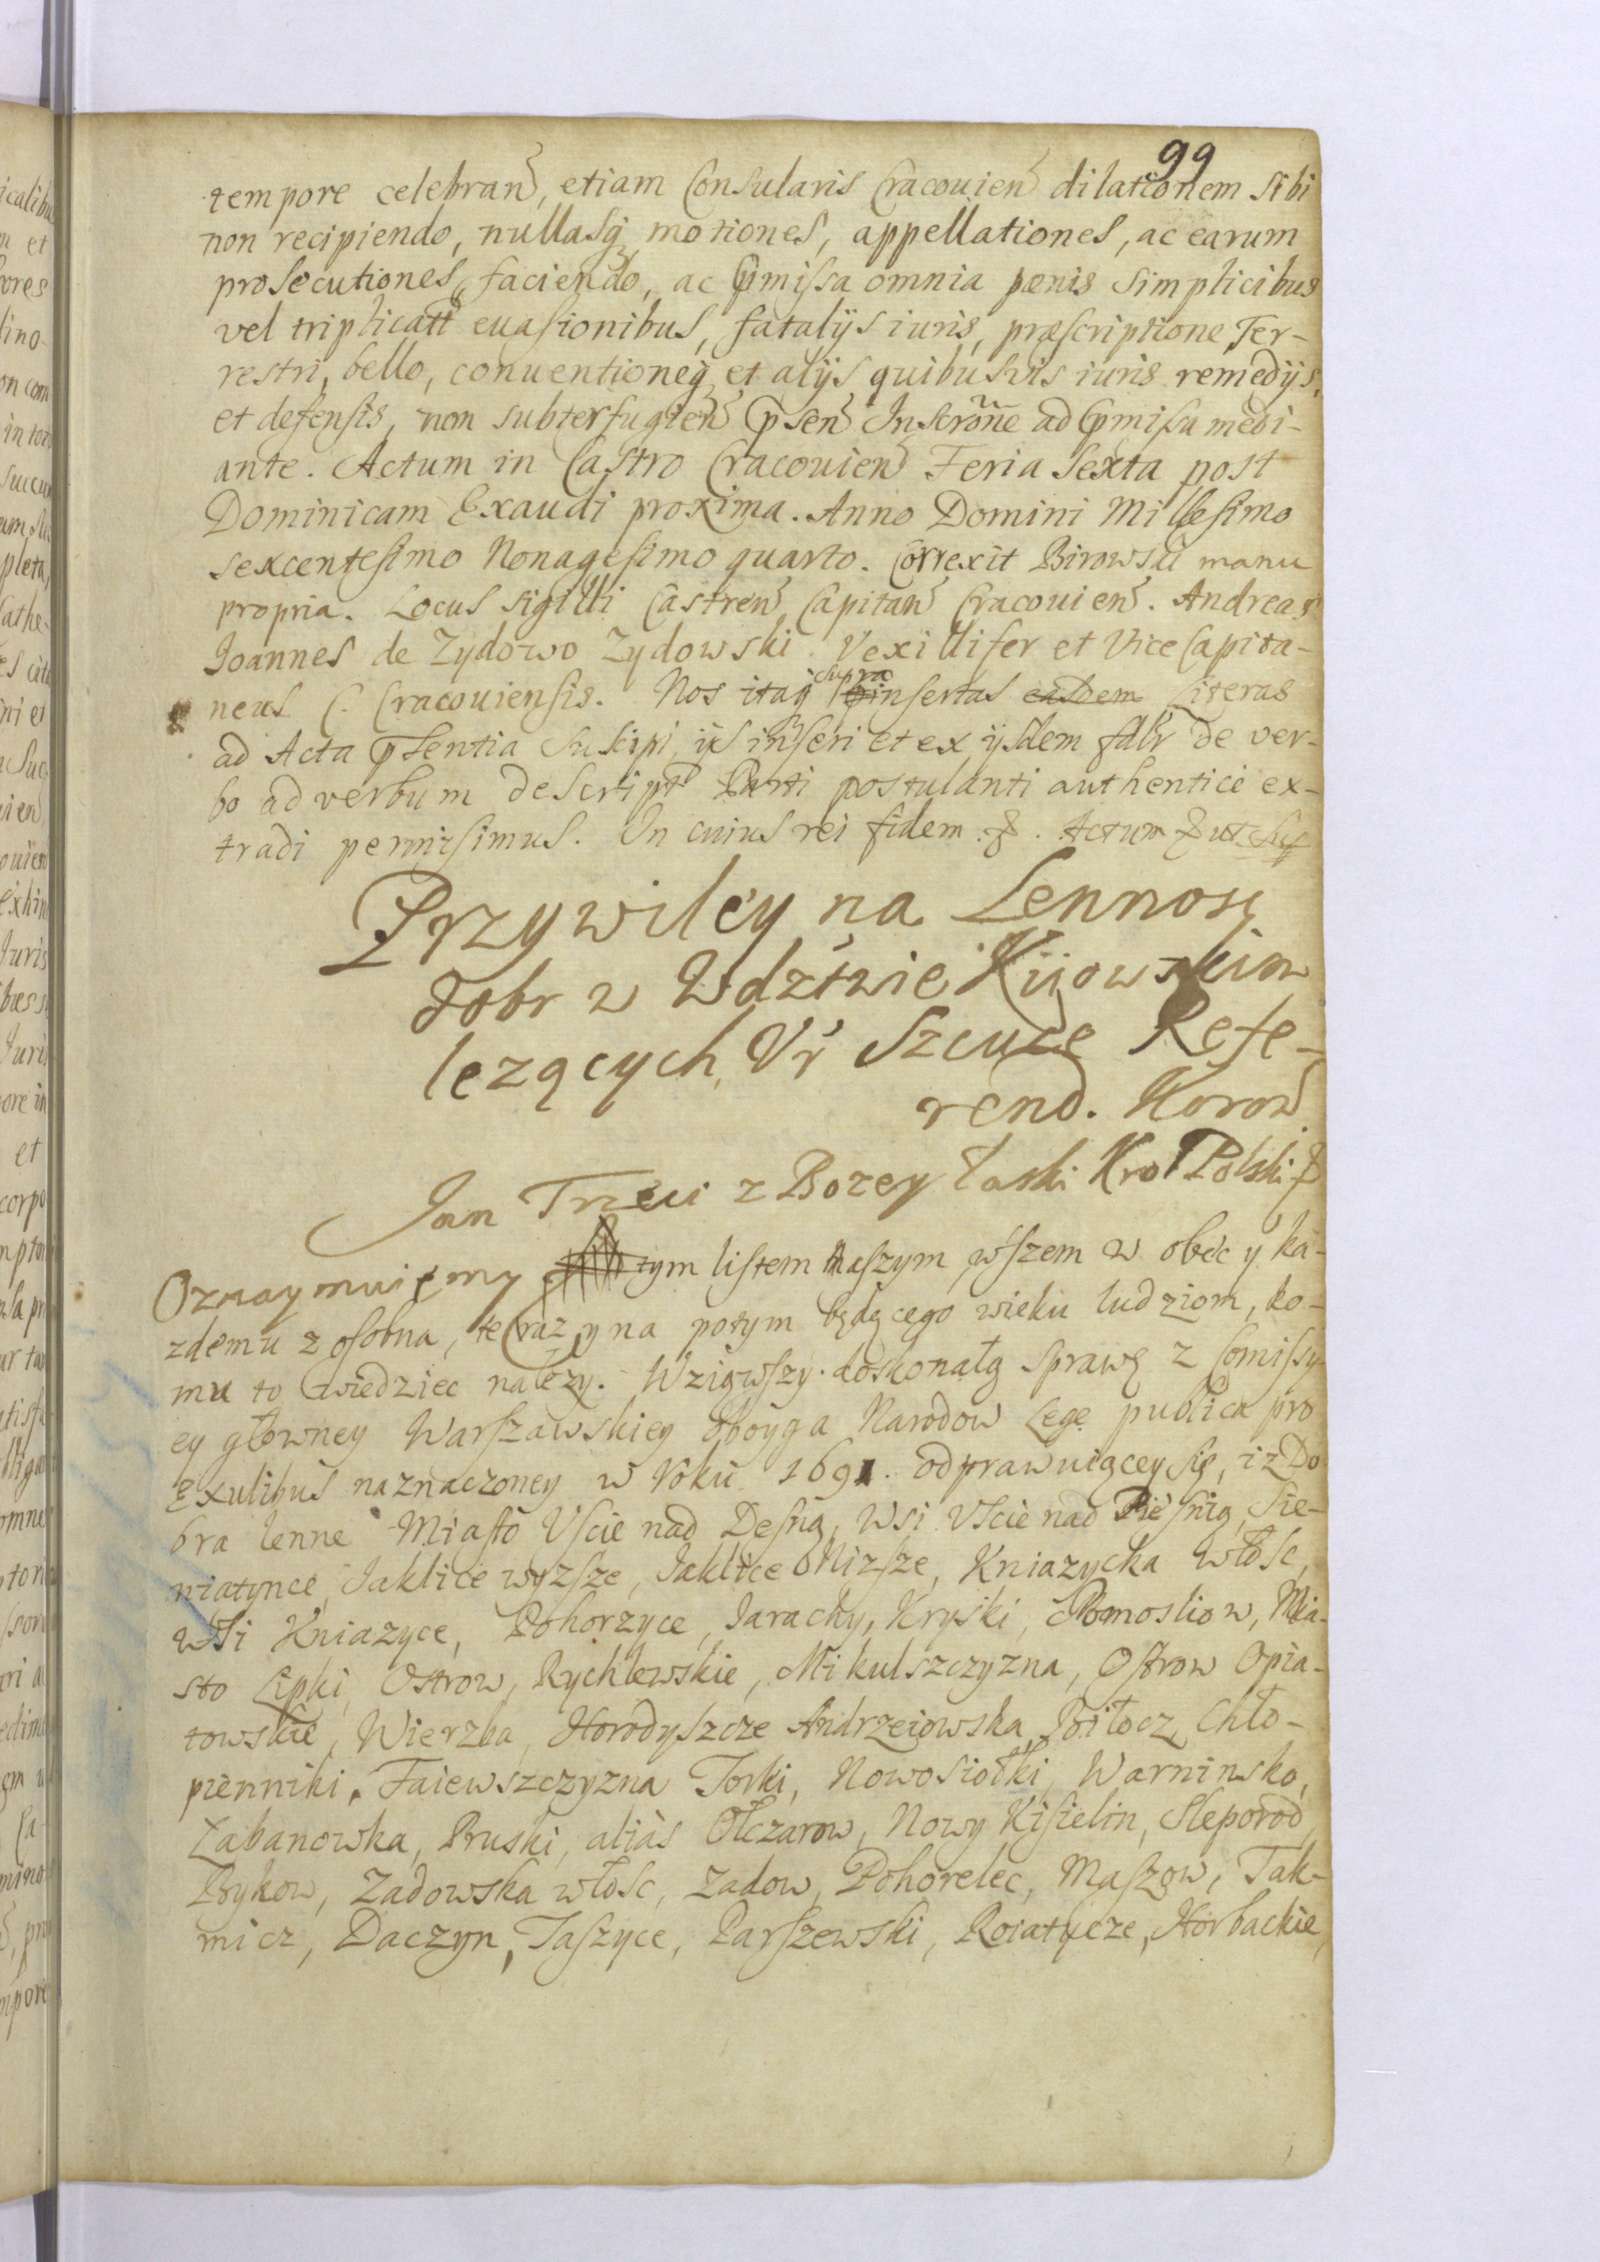 99
tempore celebran, etiam Consularis Cracouien dilationem sibi
non recipiendo, nullasq motiones, appellationes, ac earum
prosecutiones, faciendo, ac pmissa omnia pœnis simplicibus
vel triplicatt euasionibus, fatalijs iuris, præscriptione Ter-
restri, bello, conuentioneq et alijs quibusvis iuris remedijs,
et defensis, non subterfugien psen Inscrone ad pmissa medi-
ante. Actum in Castro Cracouien Feria Sexta post
Dominicam Exaudi proxima. Anno Domini Millesimo
sexcentesimo Nonagesimo quarto. Correxit Birowski manu
propria. Locus sigilli Castren Capitan Cracouien. Andreas
Joannes de Zydowo Zydowski Vexillifer et Vice Capita-
neus C. Cracouiensis. Nos itaq supra insertas easdem Literas
ad Acta psentia suscipi, ijs inseri et ex ijsdem fdlr de ver-
bo ad verbum descript Parti postulanti authentice ex-
tradi permisimus. In cuius rei fidem &. Actum & ut sup
Przywiley na Lennosc
dobr w Wdztwie Kijowskim
lezących, Vr Szcuce Refe-
rend. Koron
Jan Trzeci z Bozey łaski Krol Polski &
Oznaymuiemy tym listem naszym, wszem w obec y ka-
zdemu z osobna, teraz y na potym będącego wieku ludziom, ko-
mu to wiedziec nalezy. Wziąwszy doskonałą sprawę z Comissy-
ey głowney Warszawskiey oboyga Narodow Lege publica pro
Exulibus naznaczoney w roku 1691. odprawuiącey się, iz Do
bra lenne Miasto Vscie nad Desną, Wsi Vscie nad Piesnią, Sie-
niatynce, Jaklice wyzsze, Jaklice Nizsze, Kniazycka Włosc,
Wsi Kniazyce, Pohorzyce, Jarachy, Kryski, Pomostiow, Mia-
sto Lipki, Ostrow, Rychlewskie, Mikulszczyzna, Ostrow Opia-
towskie, Wierzba, Horodyszcze Andrzeiowska, Poitocz, Chło-
pienniki, Faiewszczyzna Torki, Nowosiołki, Warninsko,
Labanowka, Pruski, alias Olczarow, Nowy Kisielin, Sleporod,
Brykow, Zadowska włosc, Zadow, Pohorelec, Maszow, Tak-
micz, Daczyn, Taszyce, Parszewski, Roiatycze, Horbackie,